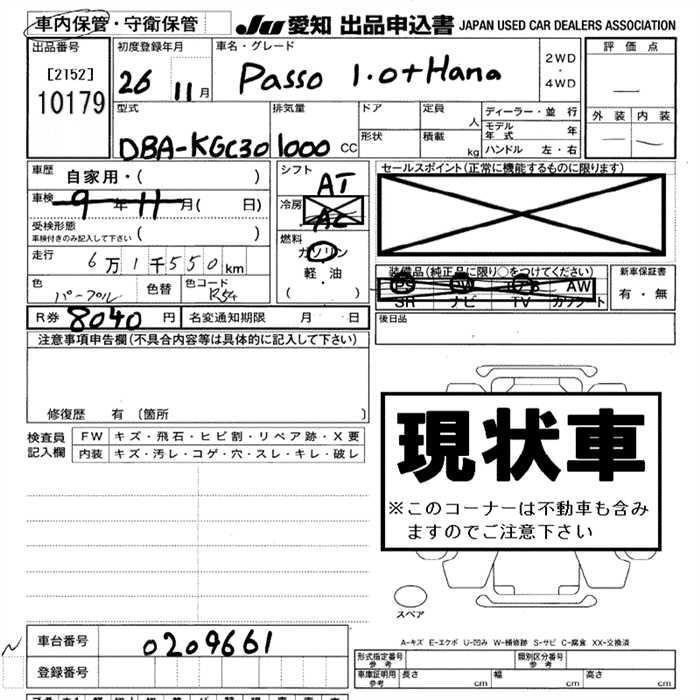 車内保管・守衛保管
JU 愛知 出品申込書 JAPAN USED CAR DEALERS ASSOCIATION
出品番号 初度登録年月 車名・グレード 評価点
[2152] 26 11月 Passo 1.0+Hana 2WD・4WD
10179
外装 内装
型式 排気量 ドア 定員 人 ディーラー・並行
DBA-KGC30 1000 CC 形状 積載 kg モデル年式 年
ハンドル 左・右
車歴 自家用・( ) シフト AT セールスポイント(正常に機能するものに限ります)
車検 9年11月( 日) 冷房 AC
受検形態 ( )
車検付きのみ記入して下さい
燃料 ガソリン・軽・油 ( )
走行 6万1千550km
装備品(純正品に限り○をつけてください) 新車保証書
色 パープル 色替 色コード AW 有・無
SR ナビ TV
R券 8040円 名変通知期限 月 日 後日品
注意事項申告欄(不具合内容等は具体的に記入して下さい)
修復歴 有〔箇所 〕
検査員記入欄 FW キズ・飛石・ヒビ割・リペア跡・X要
内装 キズ・汚レ・コゲ・穴・スレ・キレ・破レ
現状車
※このコーナーは不動車も含み
ますのでご注意下さい
スペア
A-キズ E-エクボ U-凹み W-補修跡 S-サビ C-腐食 XX-交換済
車台番号 0209661
型式指定番号 参考 類別区分番号 参考
登録番号
車庫証明用 参考 長さ cm 幅 cm 高さ cm